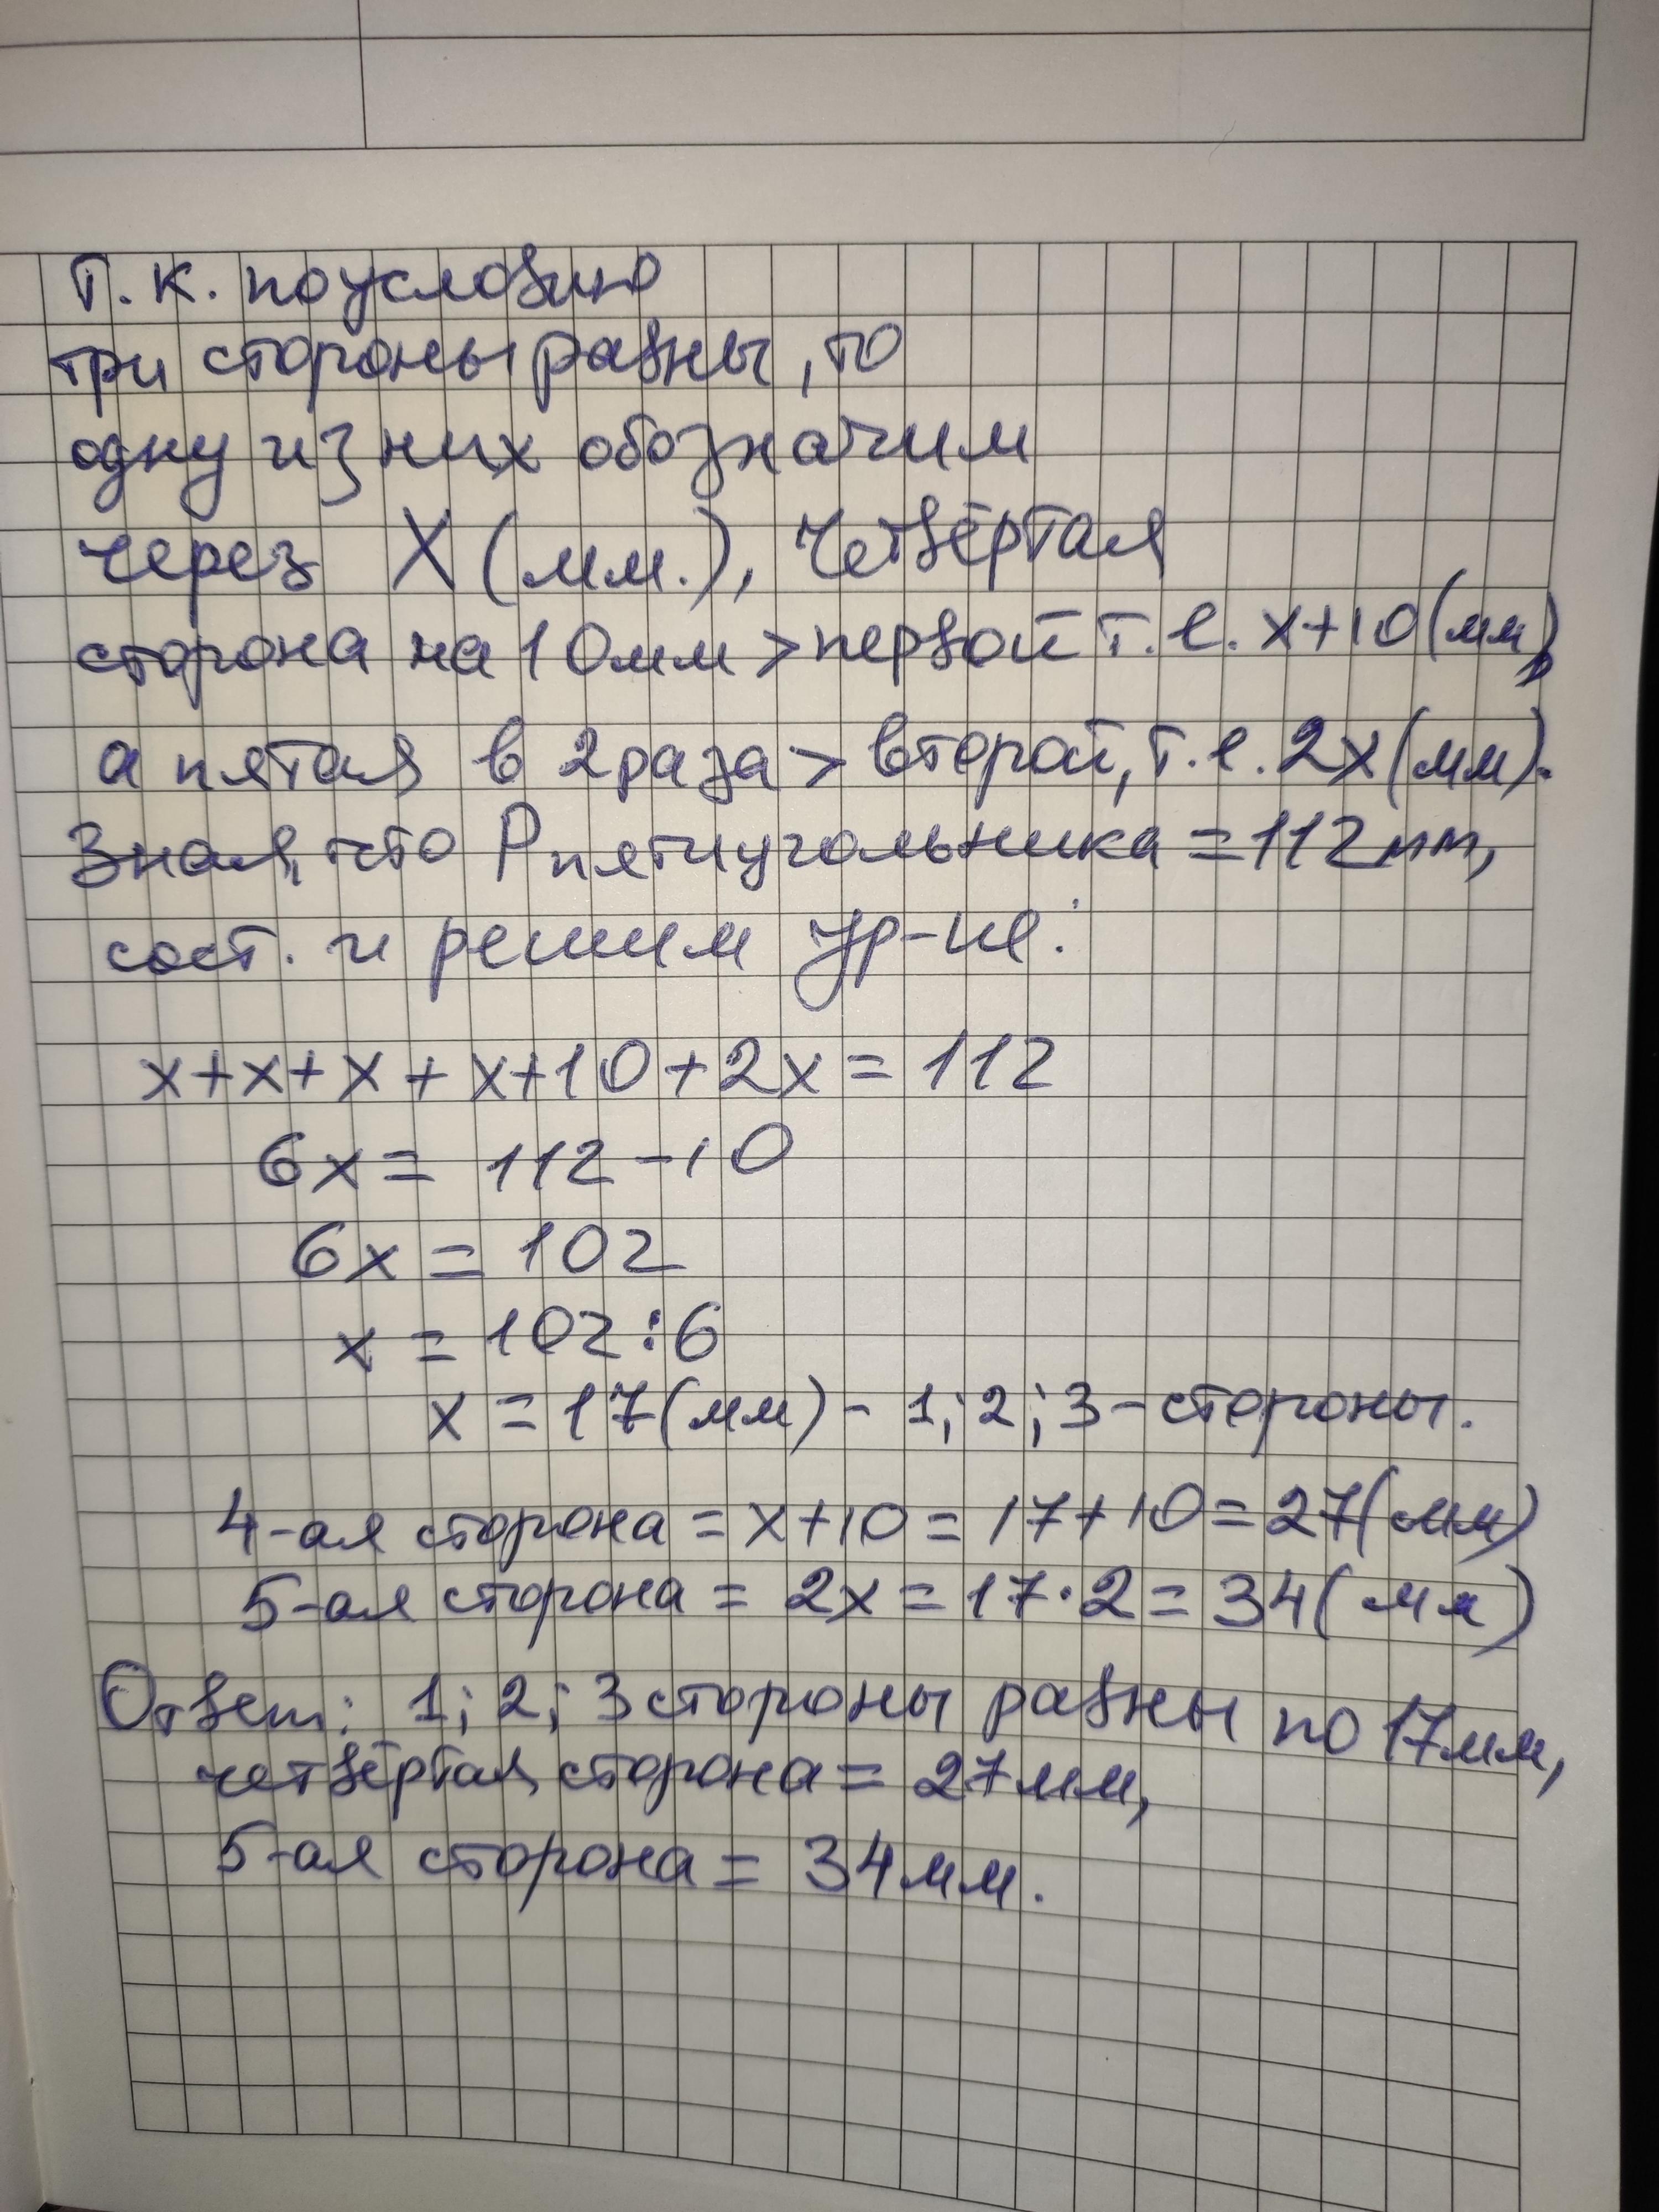 Т.к. по условию
три стороны равны, то
одну из них обозначим
через X (мм.), четвёртая
сторона на 10мм > первой т.е. x+10(мм),
а пятая в 2 раза > второй, т.е. 2x(мм).
Зная, что P пятиугольника = 112мм,
сост. и решим ур-ие:
x+x+x+x+10+2x=112
6x= 112-10
6x = 102
x = 102:6
x = 17(мм) - 1; 2; 3-стороны.
4-ая сторона = x+10 = 17+10=27(мм)
5-ая сторона = 2x = 17·2 = 34(мм)
Ответ: 1; 2; 3 стороны равны по 17мм,
четвёртая сторона = 27мм,
5-ая сторона = 34мм.